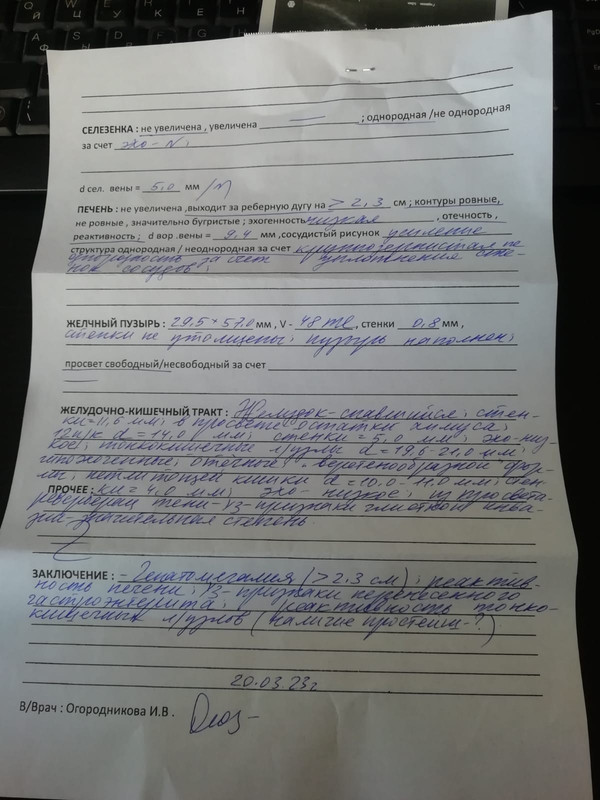 СЕЛЕЗЕНКА : не увеличена , увеличена — ; однородная /не однородная
за счет эхо-N;
d сел. вены = 5,0 мм /N
ПЕЧЕНЬ : не увеличена ,выходит за реберную дугу на > 2,3 см ; контуры ровные,
не ровные , значительно бугристые ; эхогенность низкая , отечность ,
реактивность; d вор .вены = 9,4 мм ,сосудистый рисунок усиление
структура однородная / неоднородная за счет крупнозернистая не-
однородность за счет уплотнения сте-
нок сосудов;
ЖЕЛЧНЫЙ ПУЗЫРЬ : 29,5 × 57,0 мм , V - 48 ml , стенки 0,8 мм ,
стенки не утолщены; пузырь наполнен;
просвет свободный/несвободный за счет
—
ЖЕЛУДОЧНО-КИШЕЧНЫЙ ТРАКТ : Желудок-спавшийся; стен-
ки=11,6 мм; в просвете остатки химуса;
12п/к d = 14,0 мм; стенки = 5,0 мм; эхо-низ-
кое; тонкокишечные л/узлы d = 19,6-21,0 мм;
гипоэхогенные; отечные; "веретенообразной" фор-
мы; петли тощей кишки d = 10,0-11,0 мм; стен-
ПРОЧЕ : ки = 4,0 мм; эхо низкое; из просвета
реверберации тени-УЗ-признаки глистной инва-
зии-значительная степень.
ЗАКЛЮЧЕНИЕ : - Гепатомегалия (> 2,3 см); реактив-
ность печени; УЗ-признаки перенесенного
гастроэнтерита; реактивность тонко-
кишечных л/узлов (наличие простейш-?)
20.03.23г
В/Врач : Огородникова И.В .